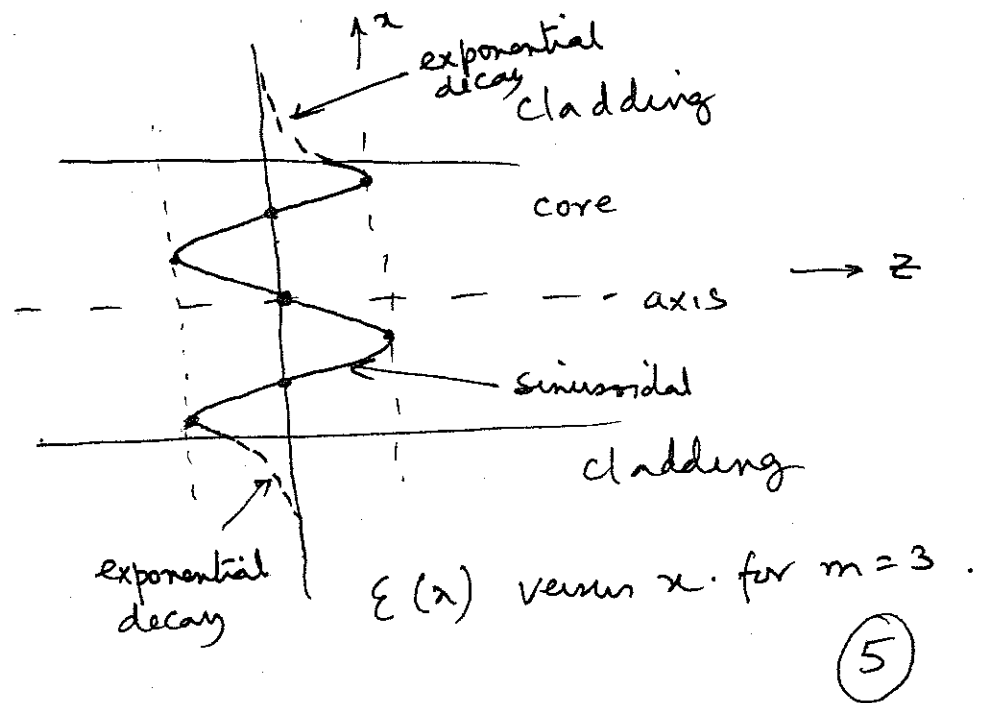 x
exponential
decay
cladding
core
z
axis
sinusoidal
cladding
exponential
decay
ℰ(x) versus x. for m = 3.
5